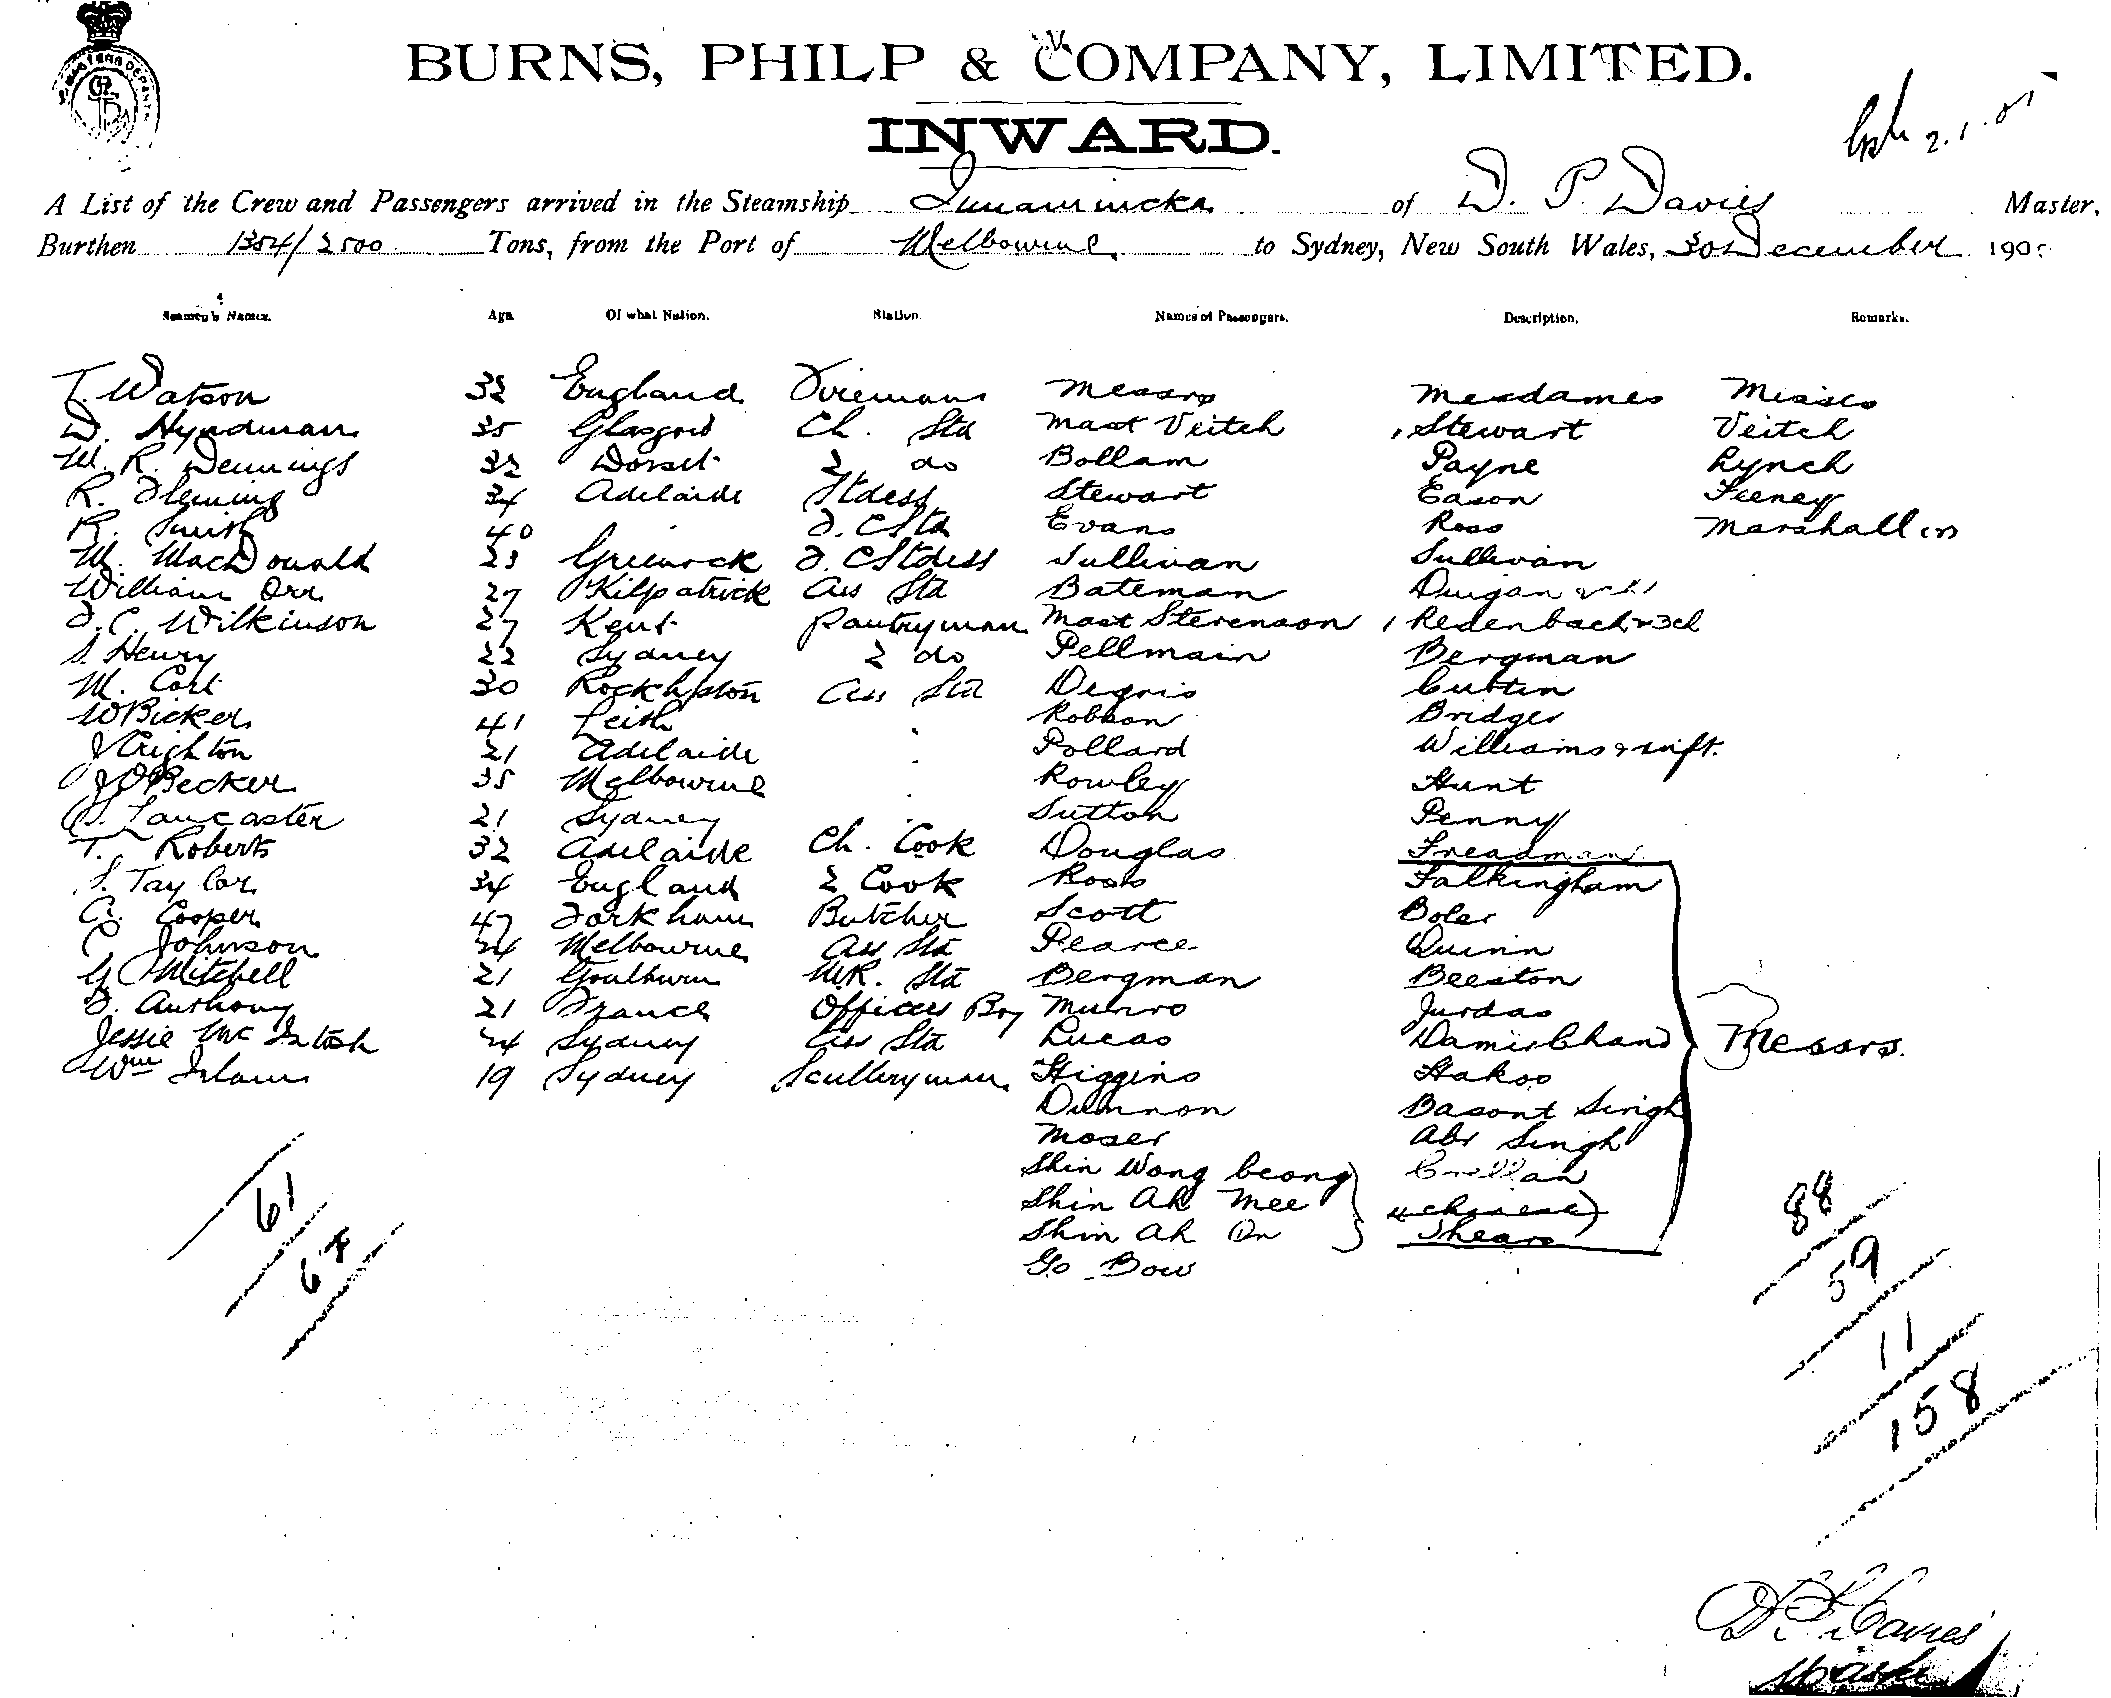 BURNS, PHILP & COMPANY, LIMITED.
INWARD.
2.1.01
A List of the Crew and Passengers arrived in the Steamship Innamincka of D. P. Davies Master,
Burthen 1354/2500 Tons, from the Port of Melbourne to Sydney, New South Wales, 30 December 190
Seamen's Names. Age Of what Nation. Station. Names of Passengers. Description. Remarks.
T. Watson 32 England Firemans Messrs Mesdames Misses
D. Hyndman 35 Glasgow Ch. Std Mast Veitch Stewart Veitch
W. R. Dennings 32 Dorset 2 do Bollam Payne Lynch
R. Fleming 34 Adelaide Stdess Stewart Eason Feeney
R. Smith 40 F. C Std Evans Ross Marshall
M. MacDonald 23 Greenock F. C Stdess Sullivan Sullivan
William Orr 27 Kilpatrick Ass Std Bateman Duigan
F. C. Wilkinson 27 Kent Pantryman Mast Stevenson Redenbach & 3 ch
S. Henry 22 Sydney 2 do Pellmain Bergman
M. Cort 30 Rockhpton Ass Std Degris Curtin
W Bicker 41 Leith Robson Bridges
J Crighton 21 Adelaide Pollard Williams & inft.
J Becker 35 Melbourne Rowley Hunt
Lancaster 21 Sydney Sutton Penny
T. Roberts 32 Adelaide Ch. Cook Douglas Freadman
S. Taylor 34 England 2 Cook Ross Falkingham
A. Cooper 47 Butcher Scott Boler
C Johnson 24 Melbourne Ass Std Pearce Quinn
G Mitchell 21 Goulburn Std Bergman Beeston
F. Anthony 21 France Officers Boy Munro Jurdas
Jessie Mc Intosh 24 Sydney Ass Std Lucas Damis Chand Messrs.
Wm 19 Sydney Sculleryman Higgins Hakoo
Dunnon Basont Singh
Moser Abr Singh
Shin Wong beong
Shin Ah Mee
Shin Ah On Shears
Go Bow
61
88
59
11
158
D P Davies
Master